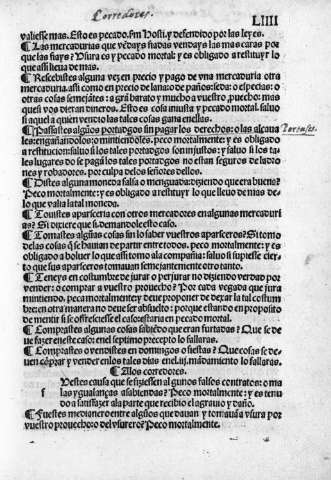 Corredores.
LIIII
valiesse mas. Esto es pecado. sm Hosti. y defendido por las leyes.
¶ Las mercadurias que vedays fiadas vendays las mas caras por
que las fiays? Usura es y pecado mortal: y es obligado a restituyr lo
que assi lleua de mas.
¶ Rescebistes alguna vez en precio y pago de vna mercaduria otra
mercaduria. assi como en precio de lana: o de paños: seda: o especias: o
otras cosas semejātes: a grā barato y mucho a vuestro, puecho: mas
que si vos dieran dineros. Esto es cosa injusta y pecado mortal. saluo
si aquel a quien vendeo las tales cosas gana enellas.
¶ Passastes algūos portadgos sin pagar los derechos: o las alcaua
las: engañandolos: o mintiendoles. peco mortalmente: y es obligado
a restitucion: saluo si los tales portadgos son injustos: y saluo si los ta
les lugares do se pagā los tales portadgos no estan seguros de ladro
nes y robadores. por culpa delos señores dellos.
¶ Distes alguna moneda falsa o menguada: diziendo que era buena?
Peco mortalmente: y es obligado a restituyr lo que lleuo de mas de
lo que valia la tal moneda.
¶ Touistes aparseria con otros mercadores en algunas mercaduri
as? Si dixere que si. demandole esto caso.
¶ Tomastes algūas cosas sin lo saber vuestros aparseros? Si tomo
delas cosas q̄ se hauian de partir entre todos. peco mortalmente: y es
obligado a boluer lo que assi tomo ala compañia: saluo si supiesse cier
to que sus aparseros tomauan semejantemente otro tanto.
¶ Teneys en costumbre de jurar o perjurar no diziendo verdad por
vender: o comprar a vuestro prouecho? Por cada vegada que jura
mintiendo. peca mortalmente: y deue proponer de dexar la tal costum
bre: en otra manera no deue ser absuelto: porque estando en proposito
de mentir si se ofreciesse el caso: estaria en pecado mortal.
¶ Comprastes algunas cosas sabiēdo que eran furtadas? Que se de
ue fazer en este caso: enel septimo precepto lo fallaras.
¶ Comprastes o vendistes en domingos o fiestas? Que cosas se de
uen cōprar y vender enlos tales dias. enel.iij. mādamiento lo fallaras.
¶ Alos corredores.
f Uestes causa que se fiziessen algunos falsos contratos: o ma
las ygualanças asabiendas? Peco mortalmente: y es tenu
do a satisfazer ala parte que recibio el agrauio y daño.
¶ Fuestes medianero entre algūos que dauan y tomauā a vsura por
vuestro prouecho: o del vsurero? Peco mortalmente.